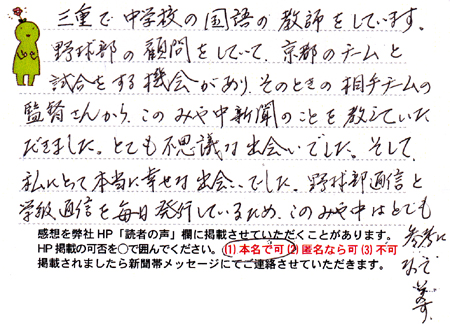 三重で中学校の国語の教師をしています。
野球部の顧問をしていて、京都のチームと
試合をする機会があり、そのときの相手チームの
監督さんから、このみや中新聞のことを教えていた
だきました。とても不思議な出会いでした。そして、
私にとって本当に幸せな出会いでした。野球部通信と
学級通信を毎日発行しているため、このみや中はとても
参考に
なって
います。
感想を弊社HP「読者の声」欄に掲載させていただくことがあります。
HP掲載の可否を○で囲んでください。(1)本名で可(2)匿名なら可(3)不可
掲載されましたら新聞帯メッセージにてご連絡させていただきます。